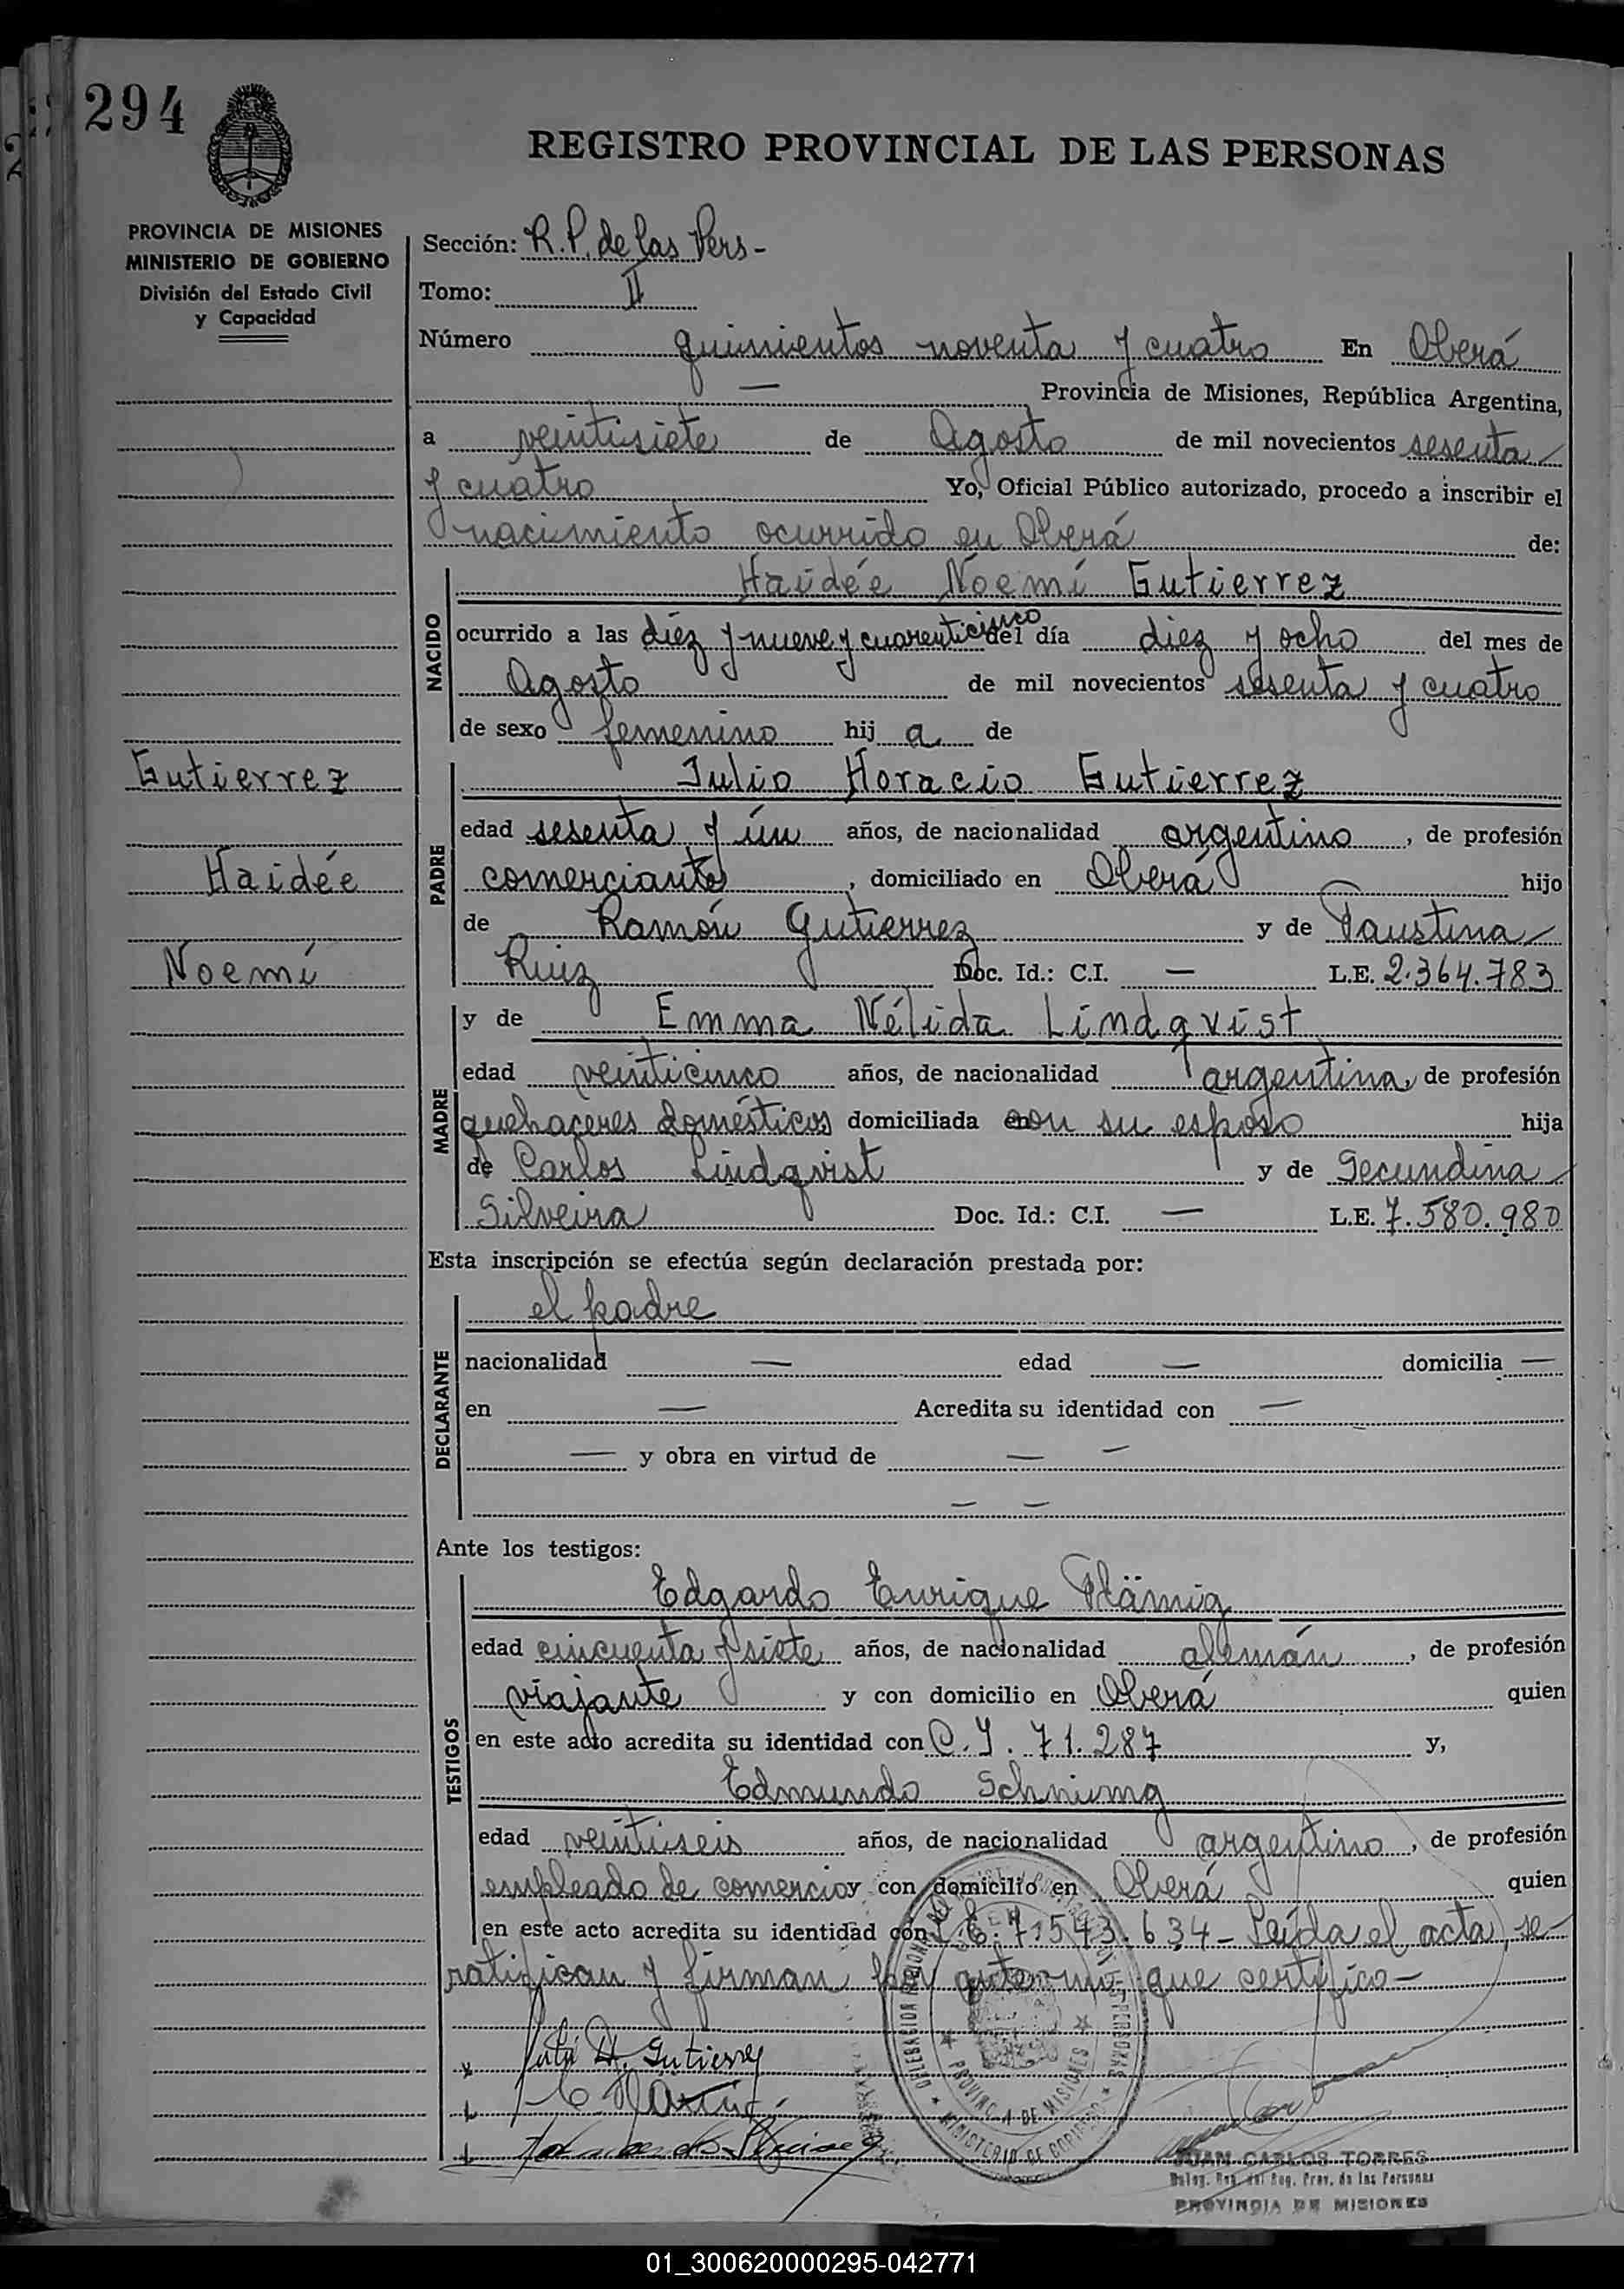 294
REGISTRO PROVINCIAL DE LAS PERSONAS
PROVINCIA DE MISIONES
MINISTERIO DE GOBIERNO
División del Estado Civil
y Capacidad
Sección: R.P. de las Pers-
Tomo: II
Número quinientos noventa y cuatro En Oberá
— Provincia de Misiones, República Argentina,
a veintisiete de Agosto de mil novecientos sesenta
y cuatro Yo, Oficial Público autorizado, procedo a inscribir el
nacimiento ocurrido en Oberá de:
NACIDO
Haidée Noemí Gutierrez
ocurrido a las diez y nueve y cuarenticinco del día diez y ocho del mes de
Agosto de mil novecientos sesenta y cuatro
de sexo femenino hij a de
Gutierrez
Haidée
Noemí
PADRE
Julio Horacio Gutierrez
edad sesenta y ún años, de nacionalidad argentino, de profesión
comerciante, domiciliado en Oberá hijo
de Ramón Gutierrez y de Faustina
Ruiz Doc. Id.: C.I. — L.E. 2.364.783
MADRE
y de Emma Nélida Lindqvist
edad veinticinco años, de nacionalidad argentina, de profesión
quehaceres domésticos domiciliada con su esposo hija
de Carlos Lindqvist y de Secundina
Silveira Doc. Id.: C.I. — L.E. 7.580.980
Esta inscripción se efectúa según declaración prestada por:
DECLARANTE
el padre
nacionalidad — edad — domicilia —
en — Acredita su identidad con —
— y obra en virtud de — —
— —
Ante los testigos:
TESTIGOS
Edgardo Enrique Flämig
edad cincuenta y siete años, de nacionalidad alemán, de profesión
viajante y con domicilio en Oberá quien
en este acto acredita su identidad con C.I. 71.287 y,
Edmundo
edad veintiseis años, de nacionalidad argentino, de profesión
empleado de comercio y con domicilio en Oberá quien
en este acto acredita su identidad con L.E. 7.543.634 - Leída el acta, se
ratifican y firman por ante mí, que certifico -
Gutierrez
PROVINCIA DE MISIONES
MINISTERIO DE GOBIERNO
JUAN CARLOS TORRES
Deleg. Reg. del Reg. Prov. de las Personas
PROVINCIA DE MISIONES
01_300620000295-042771